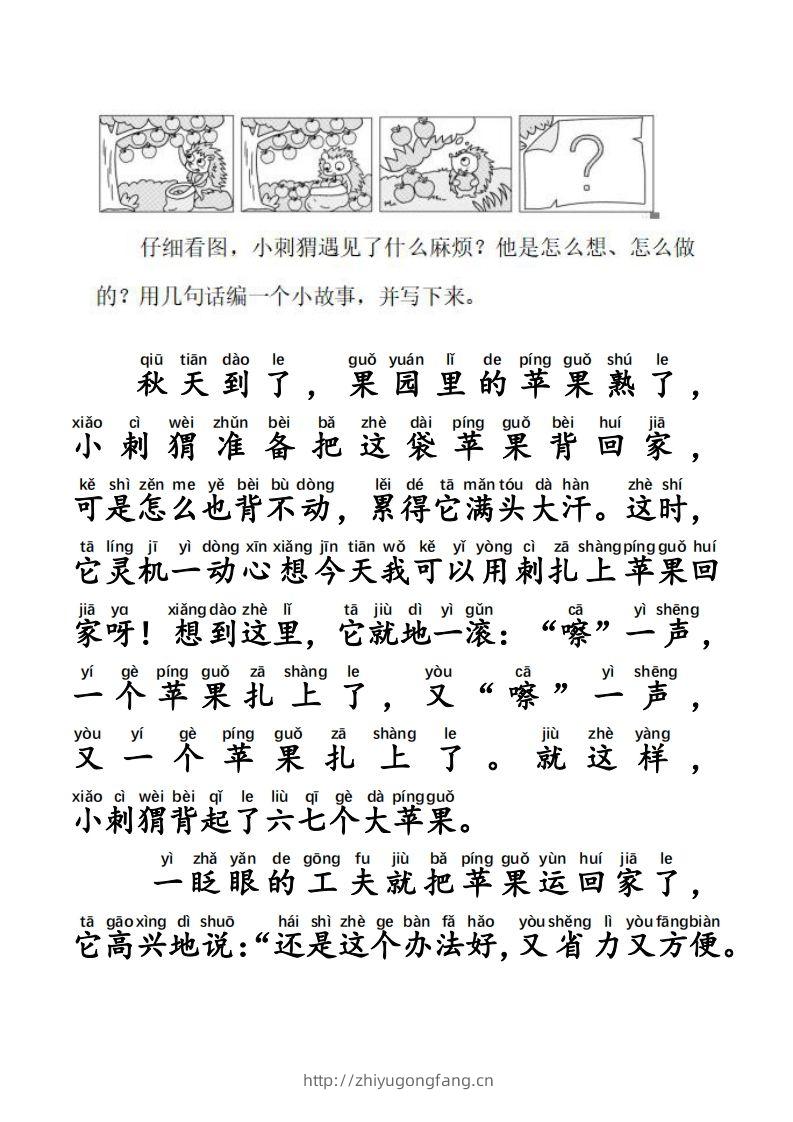 ?
仔细看图，小刺猬遇见了什么麻烦？他是怎么想、怎么做
的？用几句话编一个小故事，并写下来。
qiū tiān dào le guǒ yuán lǐ de píng guǒ shú le
秋天到了，果园里的苹果熟了，
xiǎo cì wèi zhǔn bèi bǎ zhè dài píng guǒ bèi huí jiā
小刺猬准备把这袋苹果背回家，
kě shì zěn me yě bèi bù dòng lěi dé tā mǎn tóu dà hàn zhè shí
可是怎么也背不动，累得它满头大汗。这时，
tā líng jī yì dòng xīn xiǎng jīn tiān wǒ kě yǐ yòng cì zā shàng píng guǒ huí
它灵机一动心想今天我可以用刺扎上苹果回
jiā ya xiǎng dào zhè lǐ tā jiù dì yì gǔn cā yì shēng
家呀！想到这里，它就地一滚：“嚓”一声，
yí gè píng guǒ zā shàng le yòu cā yì shēng
一个苹果扎上了，又“嚓”一声，
yòu yí gè píng guǒ zā shàng le jiù zhè yàng
又一个苹果扎上了。就这样，
xiǎo cì wèi bèi qǐ le liù qī gè dà píng guǒ
小刺猬背起了六七个大苹果。
yì zhǎ yǎn de gōng fu jiù bǎ píng guǒ yùn huí jiā le
一眨眼的工夫就把苹果运回家了，
tā gāo xìng dì shuō hái shì zhè ge bàn fǎ hǎo yòu shěng lì yòu fāng biàn
它高兴地说：“还是这个办法好，又省力又方便。
http://zhiyugongfang.cn